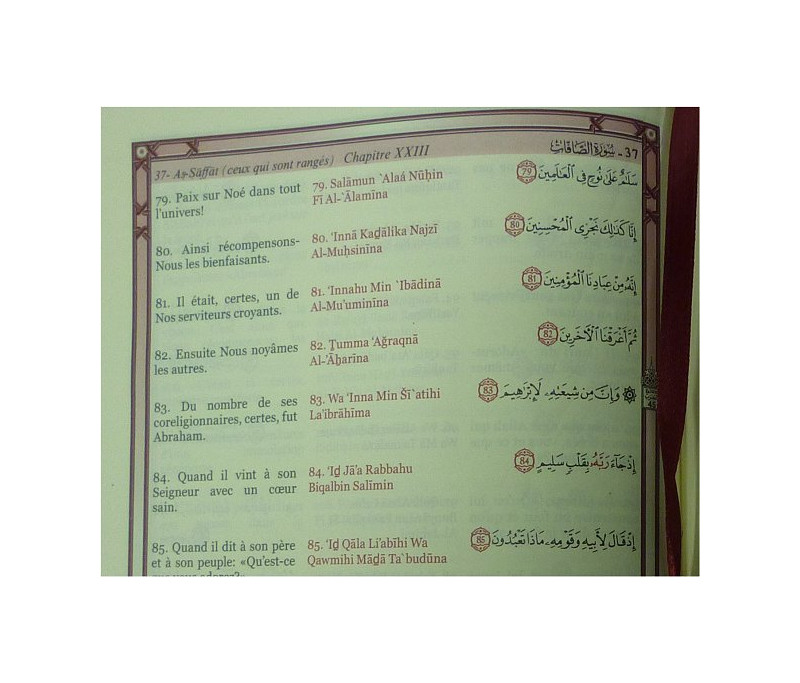 37- Aṣ-Sāffāt (ceux qui sont rangés) Chapitre XXIII
37 - سُورَةُ الصَّافَّاتِ
79. Paix sur Noé dans tout
l'univers!
79. Salāmun `Alaá Nūĥin
Fī Al-`Ālamīna
سَلَٰمٌ عَلَىٰ نُوحٍ فِى ٱلْعَٰلَمِينَ 79
80. Ainsi récompensons-
Nous les bienfaisants.
80. 'Innā Kaḏālika Najzī
Al-Muḥsinīna
إِنَّا كَذَٰلِكَ نَجْزِى ٱلْمُحْسِنِينَ 80
81. Il était, certes, un de
Nos serviteurs croyants.
81. 'Innahu Min `Ibādinā
Al-Mu'uminīna
إِنَّهُۥ مِنْ عِبَادِنَا ٱلْمُؤْمِنِينَ 81
82. Ensuite Nous noyâmes
les autres.
82. Ṯumma 'Aḡraqnā
Al-'Āẖarīna
ثُمَّ أَغْرَقْنَا ٱلْآخَرِينَ 82
83. Du nombre de ses
coreligionnaires, certes, fut
Abraham.
83. Wa 'Inna Min Šī`atihi
La'ibrāhīma
۞ وَإِنَّ مِن شِيعَتِهِۦ لَإِبْرَٰهِيمَ 83
84. Quand il vint à son
Seigneur avec un cœur
sain.
84. 'Iḏ Jā'a Rabbahu
Biqalbin Salīmin
إِذْ جَآءَ رَبَّهُۥ بِقَلْبٍ سَلِيمٍ 84
85. Quand il dit à son père
et à son peuple: «Qu'est-ce
que vous adorez?»
85. 'Iḏ Qāla Li'abīhi Wa
Qawmihi Māḏā Ta`budūna
إِذْ قَالَ لِأَبِيهِ وَقَوْمِهِۦ مَاذَا تَعْبُدُونَ 85